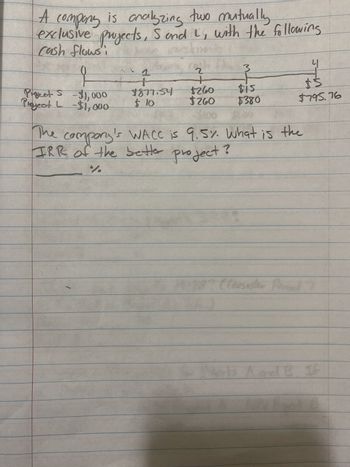 A company is analyzing two mutually
exclusive projects, S and L, with the following
cash flows:
0 1 2 3 4
Project S -$1,000 $877.54 $260 $15 $5
Project L -$1,000 $10 $260 $380 $795.76
The company's WACC is 9.5%. What is the
IRR of the better project?
____ %